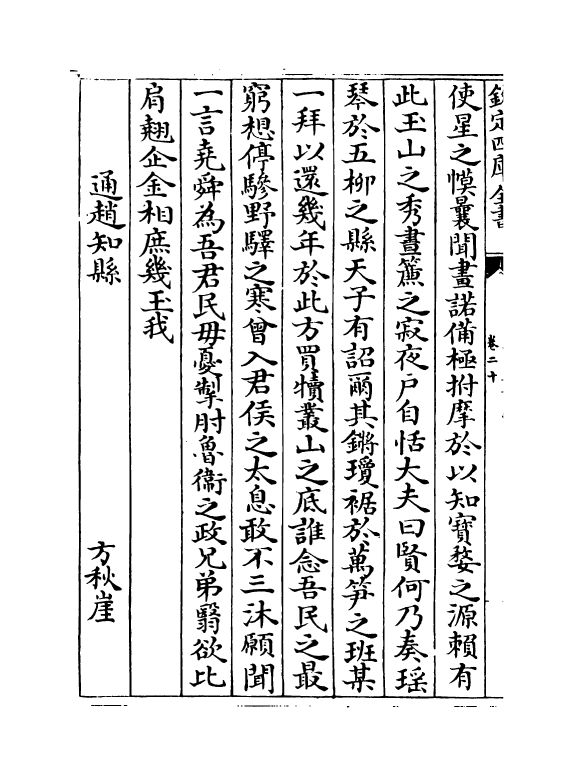 欽定四庫全書
卷二十
使星之幙曩聞畫諾備極拊摩於以知寶婺之源頼有
此玉山之秀晝簾之寂夜户自恬大夫曰賢何乃奏瑶
琴於五柳之縣天子有詔爾其鏘瓊裾於萬笋之班某
一拜以還幾年於此方買犢叢山之底誰念吾民之最
窮想停驂野驛之寒曾入君侯之太息敢不三沐願聞
一言堯舜為吾君民毋憂掣肘魯衛之政兄弟翳欲比
肩翹企金相庶幾玉我
通趙知縣
方秋崖